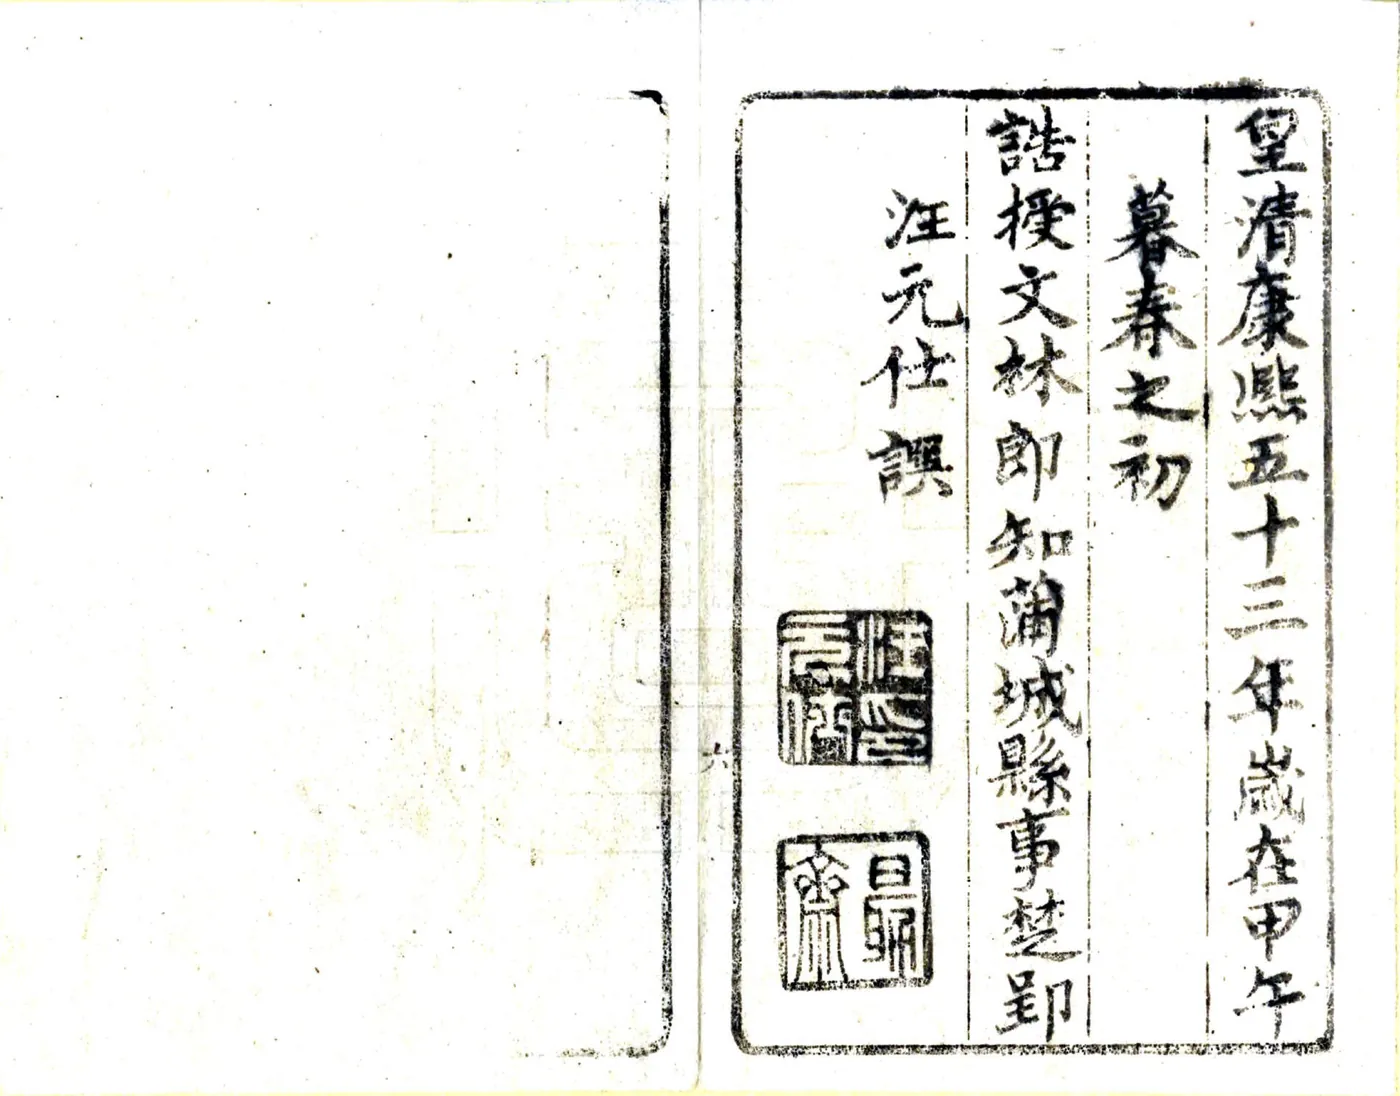 皇清康熙五十三年歲在甲午
暮春之初
誥授文林郎知蒲城縣事楚郢
汪元仕譔
汪元仕印
齋
六